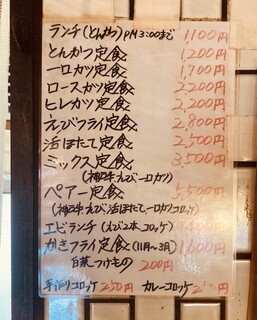 ランチ(とんかつ)PM3:00まで 1,100円
とんかつ定食 1,200円
一口カツ定食 1,700円
ロースカツ定食 2,200円
ヒレカツ定食 2,200円
えびフライ定食 2,800円
活ほたて定食 2,500円
ミックス定食 3,500円
(神戸牛・えび・一口カツ)
ペアー定食 5,500円
(神戸牛・えび・活ほたて・一口カツ・コロッケ)
エビランチ(えび2本、コロッケ) 1,400円
かきフライ定食(11月〜3月) 1,600円
白菜つけもの 200円
手作りコロッケ 250円 カレーコロッケ